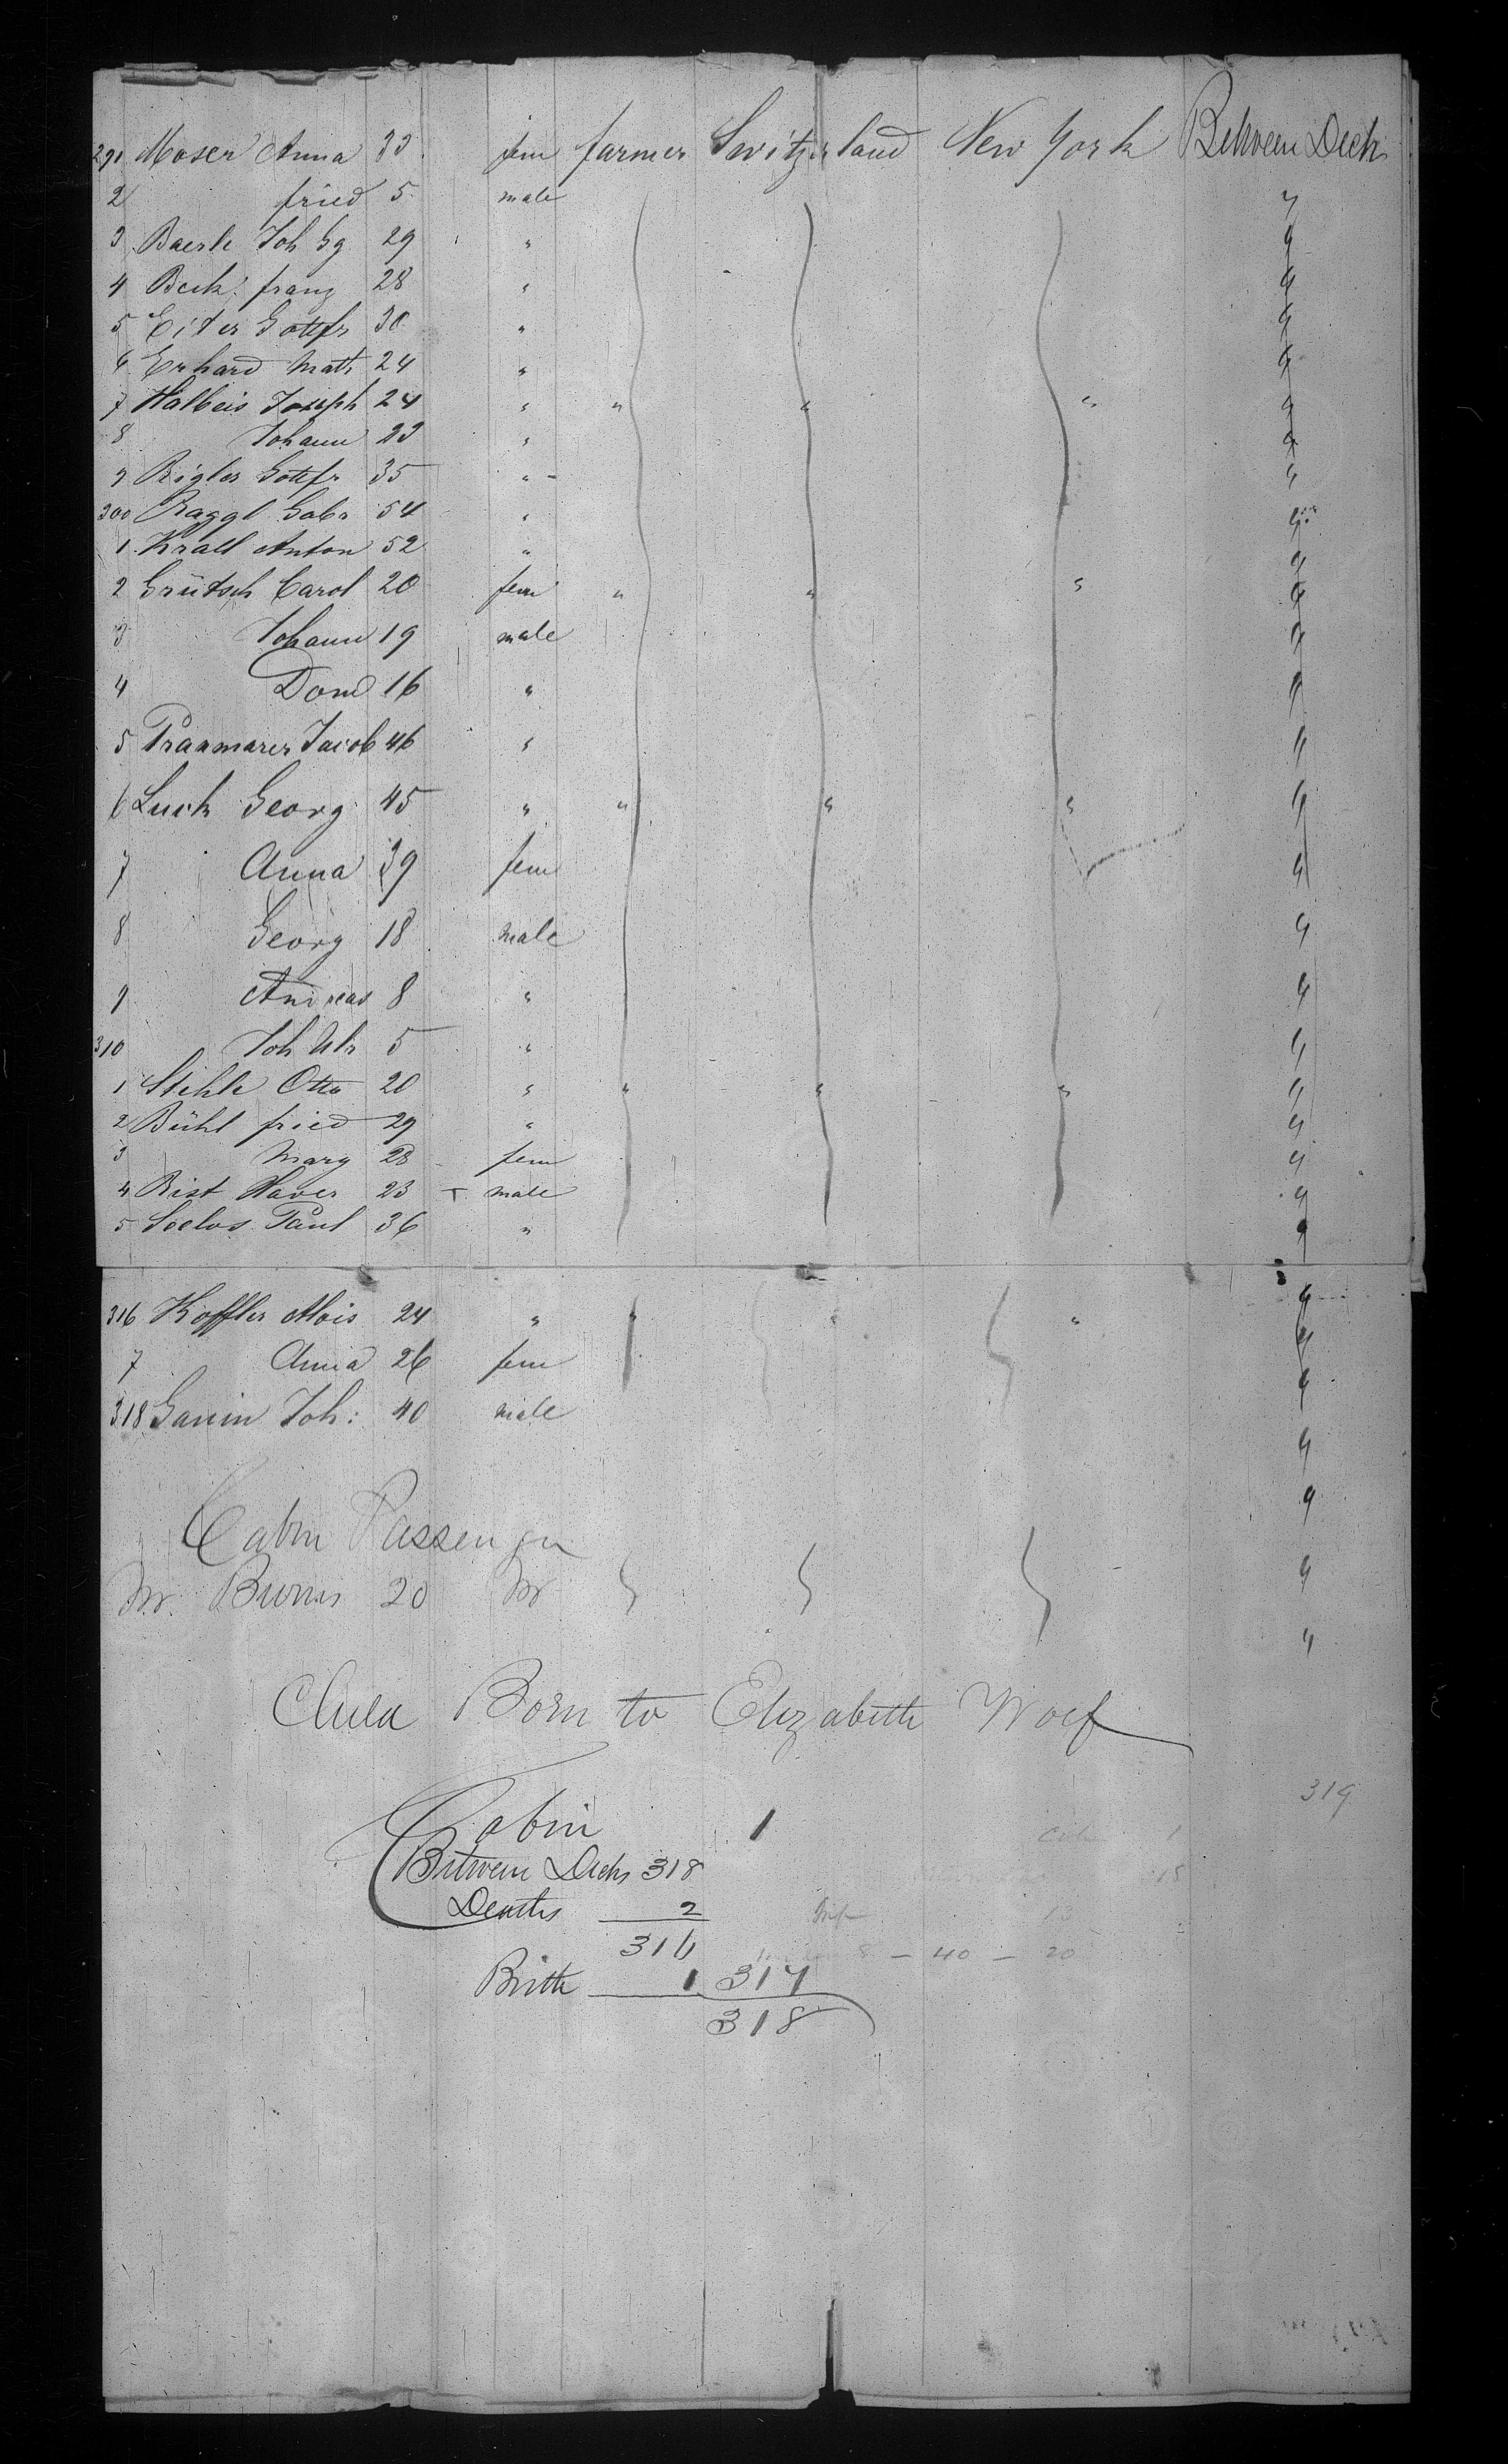 291 Moser Anna 33 fem farmer Switzerland New York Between Deck
2 fried 5 male "
3 Baerle Joh Gg 29 " "
4 Beck franz 28 " "
5 Eiter Gottfr 30 " "
6 Erhard Math 24 " "
7 Halbeis Joseph 24 " " " " "
8 Johann 23 " "
9 Rigler Gottfr 35 " "
300 Raggl Gabr 54 " "
1 Krall Anton 52 " "
2 Grütsch Carol 20 fem " " " "
3 Johann 19 male "
4 Dom 16 " "
5 Pranmarer Jacob 46 " "
6 Luck Georg 45 " " " " "
7 Anna 39 fem "
8 Georg 18 male "
9 Andreas 8 " "
310 Joh Ulr 5 " "
1 Stihle Otto 20 " " " " "
2 Bühl fried 29 " "
3 Marg 28 fem "
4 Rist Xaver 23 male "
5 Seelos Paul 36 " "
316 Koffler Alois 24 " " " " "
7 Anna 26 fem "
318 Joh: 40 male "
Cabin Passenger
Mr. Burns 20 M
Child Born to Elizabeth Woef
319
Cabin 1
Between Decks 318
Deaths 2
316
8 - 40 - 20
Birth 1 317
318